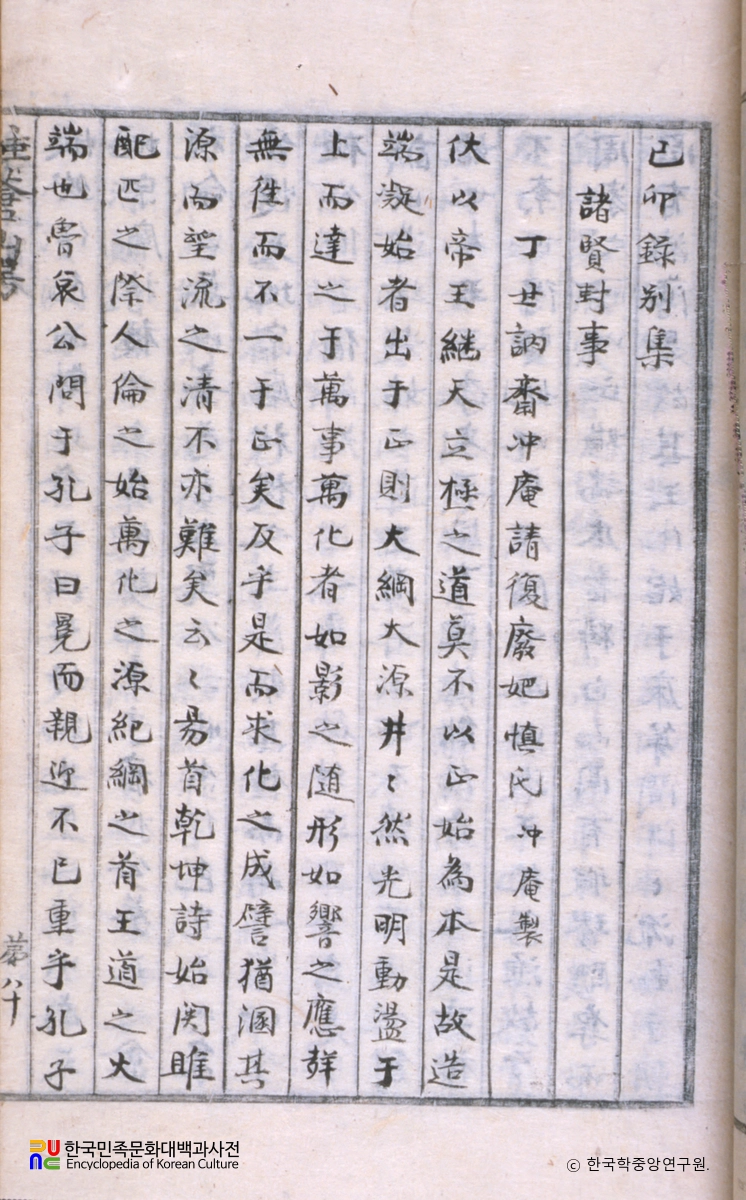 己卯錄別集
諸賢封事
丁丑訥齋冲庵請復廢妃愼氏 冲庵製
伏以帝王継天立極之道莫不以正始為本是故造
端凝始者出于正則大綱大源井〻然光明動盪于
上而達之于萬事萬化者如影之随形如響之應群
無徃而不一于正矣反乎是而求化之成譬猶溷其
源而望流之清不亦難矣云〻易首乾坤詩始関雎
配匹之際人倫之始萬化之源紀綱之首王道之大
端也魯哀公問于孔子曰冕而親迎不已重乎孔子
第八十
한국민족문화대백과사전
Encyclopedia of Korean Culture
© 한국학중앙연구원.